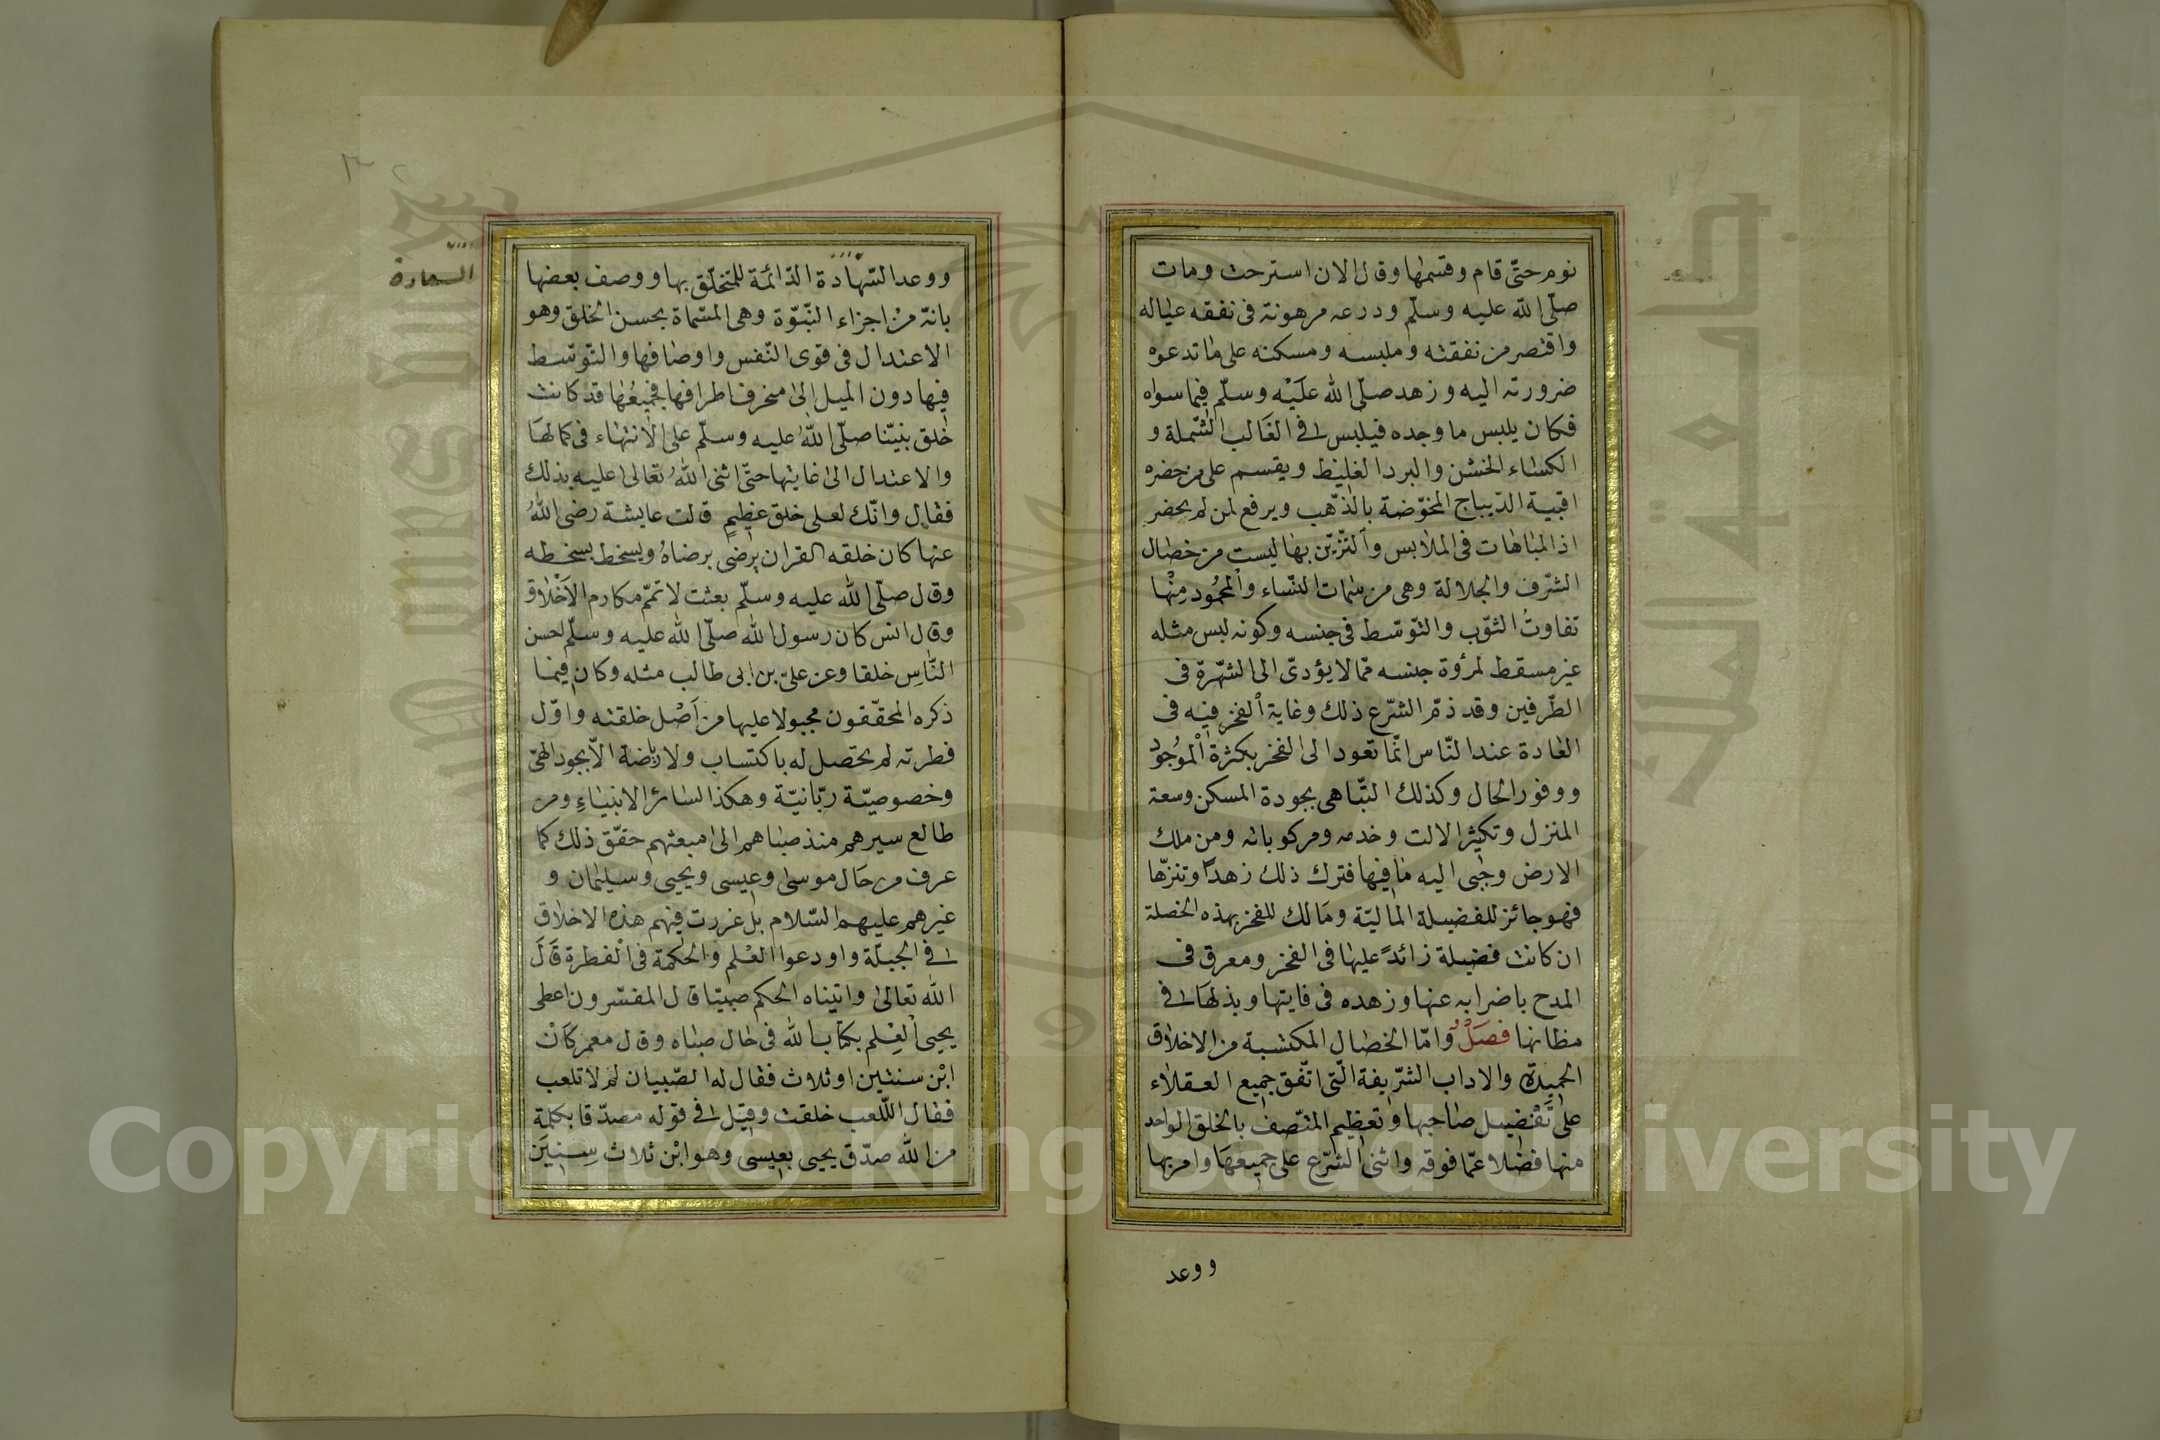 نوم حتّى قام وقسمها وقال الان استرحت ومات
صلّى الله عليه وسلّم ودرعه مرهونة فى نفقه عياله
واقتصر من نفقته وملبسه ومسكنه على ما تدعوه
ضرورته اليه وزهد صلّى الله عليْه وسلّم فيما سواه
فكان يلبس ما وجده فيلبس فى الغَالب الشّملة و
الكساء الخشن والبرد الغليظ ويقسم على من حضره
اقبية الدّيباج المخوّضة بالذّهب ويرفع لمن لم يحضر
اذ المباهات فى الملابس والتّزيّن بها ليست من خصال
الشّرف والجلالة وهى من سمات النّساء والمحمُود مِنْها
تفاوتُ الثوّب والتّوسّط فى جنسه وكونه لبس مثله
غير مسقط لمرؤة جنسه ممّا لا يؤدىّ الى الشّهرة فى
الطّرفين وقد ذمّ الشّرع ذلك وغاية الفخر فيْه فى
العادة عند النّاس انّما تعود الى الفخر بكثرة الْموُجوُد
ووفور الحال وكذلك التّباهى بجودة المسكن وسعة
المنزل وتكثير الالت وخدمه ومركوباته ومن ملك
الارض وجبى اليه ما فيها فترك ذلك زهداً وتنزّها
فهو جائز للفضيلة الماليّة ومَالك للفخر بهذه الخصلة
ان كانت فضيلة زائدةً عليها فى الفخر ومعرق فى
المدح باضرابه عنها وزهده فى فايتها وبذلهَا فى
مظانها فصَلْ وامّا الخصال المكتسبة من الاخلاق
الحميدة والاداب الشّريفة الّتى اتّفق جميع العقلاء
على تَفْضيل صاحبها وتعظيم المتّصف بالخلق الواحد
منها فضلا عمّا فوقه واثنى الشّرع على جميعهَا وامر بها
ووعد
السعادة
ووعد السّهادة الدّائمة للمتخلّق بها ووصف بعضها
بانهّ منْ اجزاء النّبوّة وهى المسّماة بحسن الخلق وهو
الاعتدال فى قوى النّفس واوصافها والتّوسّط
فيها دون الميل الى منحرف اطرافها فجميْعُها قد كانت
خلق نبيّنا صلّى اللهُ عليه وسلّم على الانتهاء فى كمالهَا
والاعتدال الى غايتها حتّى اثنى اللهُ تعَالى عليه بذلك
فقال وانّك لعلى خلق عظيمٍ قالت عايشة رضى اللهُ
عنها كان خلقه القران يرضى برضاهُ ويسخط بسخطه
وقال صلّى الله عليه وسلّم بعثت لاتمّم مكارم الاَخْلاق
وقال انس كان رسول الله صلّى الله عليه وسلّم احسن
النّاسِ خلقا وعن علىّ بن ابى طالب مثله وكان فيما
ذكره المحقّقون مجبولا عليها من اَصْل خلقته واوّل
فطرته لم يحصل له باكتساب ولا رياضة الاّ بجود الهىّ
وخصوصيّة ربّانيّة وهكذا لسائر الانبياءِ ومن
طالع سيرهم منذ صباهم الى مبعثهم حقّق ذلك كما
عرف من حَال موسى وعيسى ويحيى وسليمان و
غيرهم عليهم السّلام بل غررت فيهم هذه الاخلاق
فى الجبلّة واودعوا العْلم والحكمة فى الْفطرة قَالَ
الله تعالىٰ واتيناه الحكم صبيّا قال المفسّرون اعطى
يحيى الْعِلم بكتاب الله فى حَال صباه وقال معمر كَانْ
ابْن سنتين او ثلاث فقال له الصّبيان لمْ لا تلعب
فقال اللّعب خلقت وقيْل فى قوله مصدّقا بكلمة
من الله صدّق يحيى بعيسى وهو ابْن ثلاث سِنينَ
Copyright © King Saud University